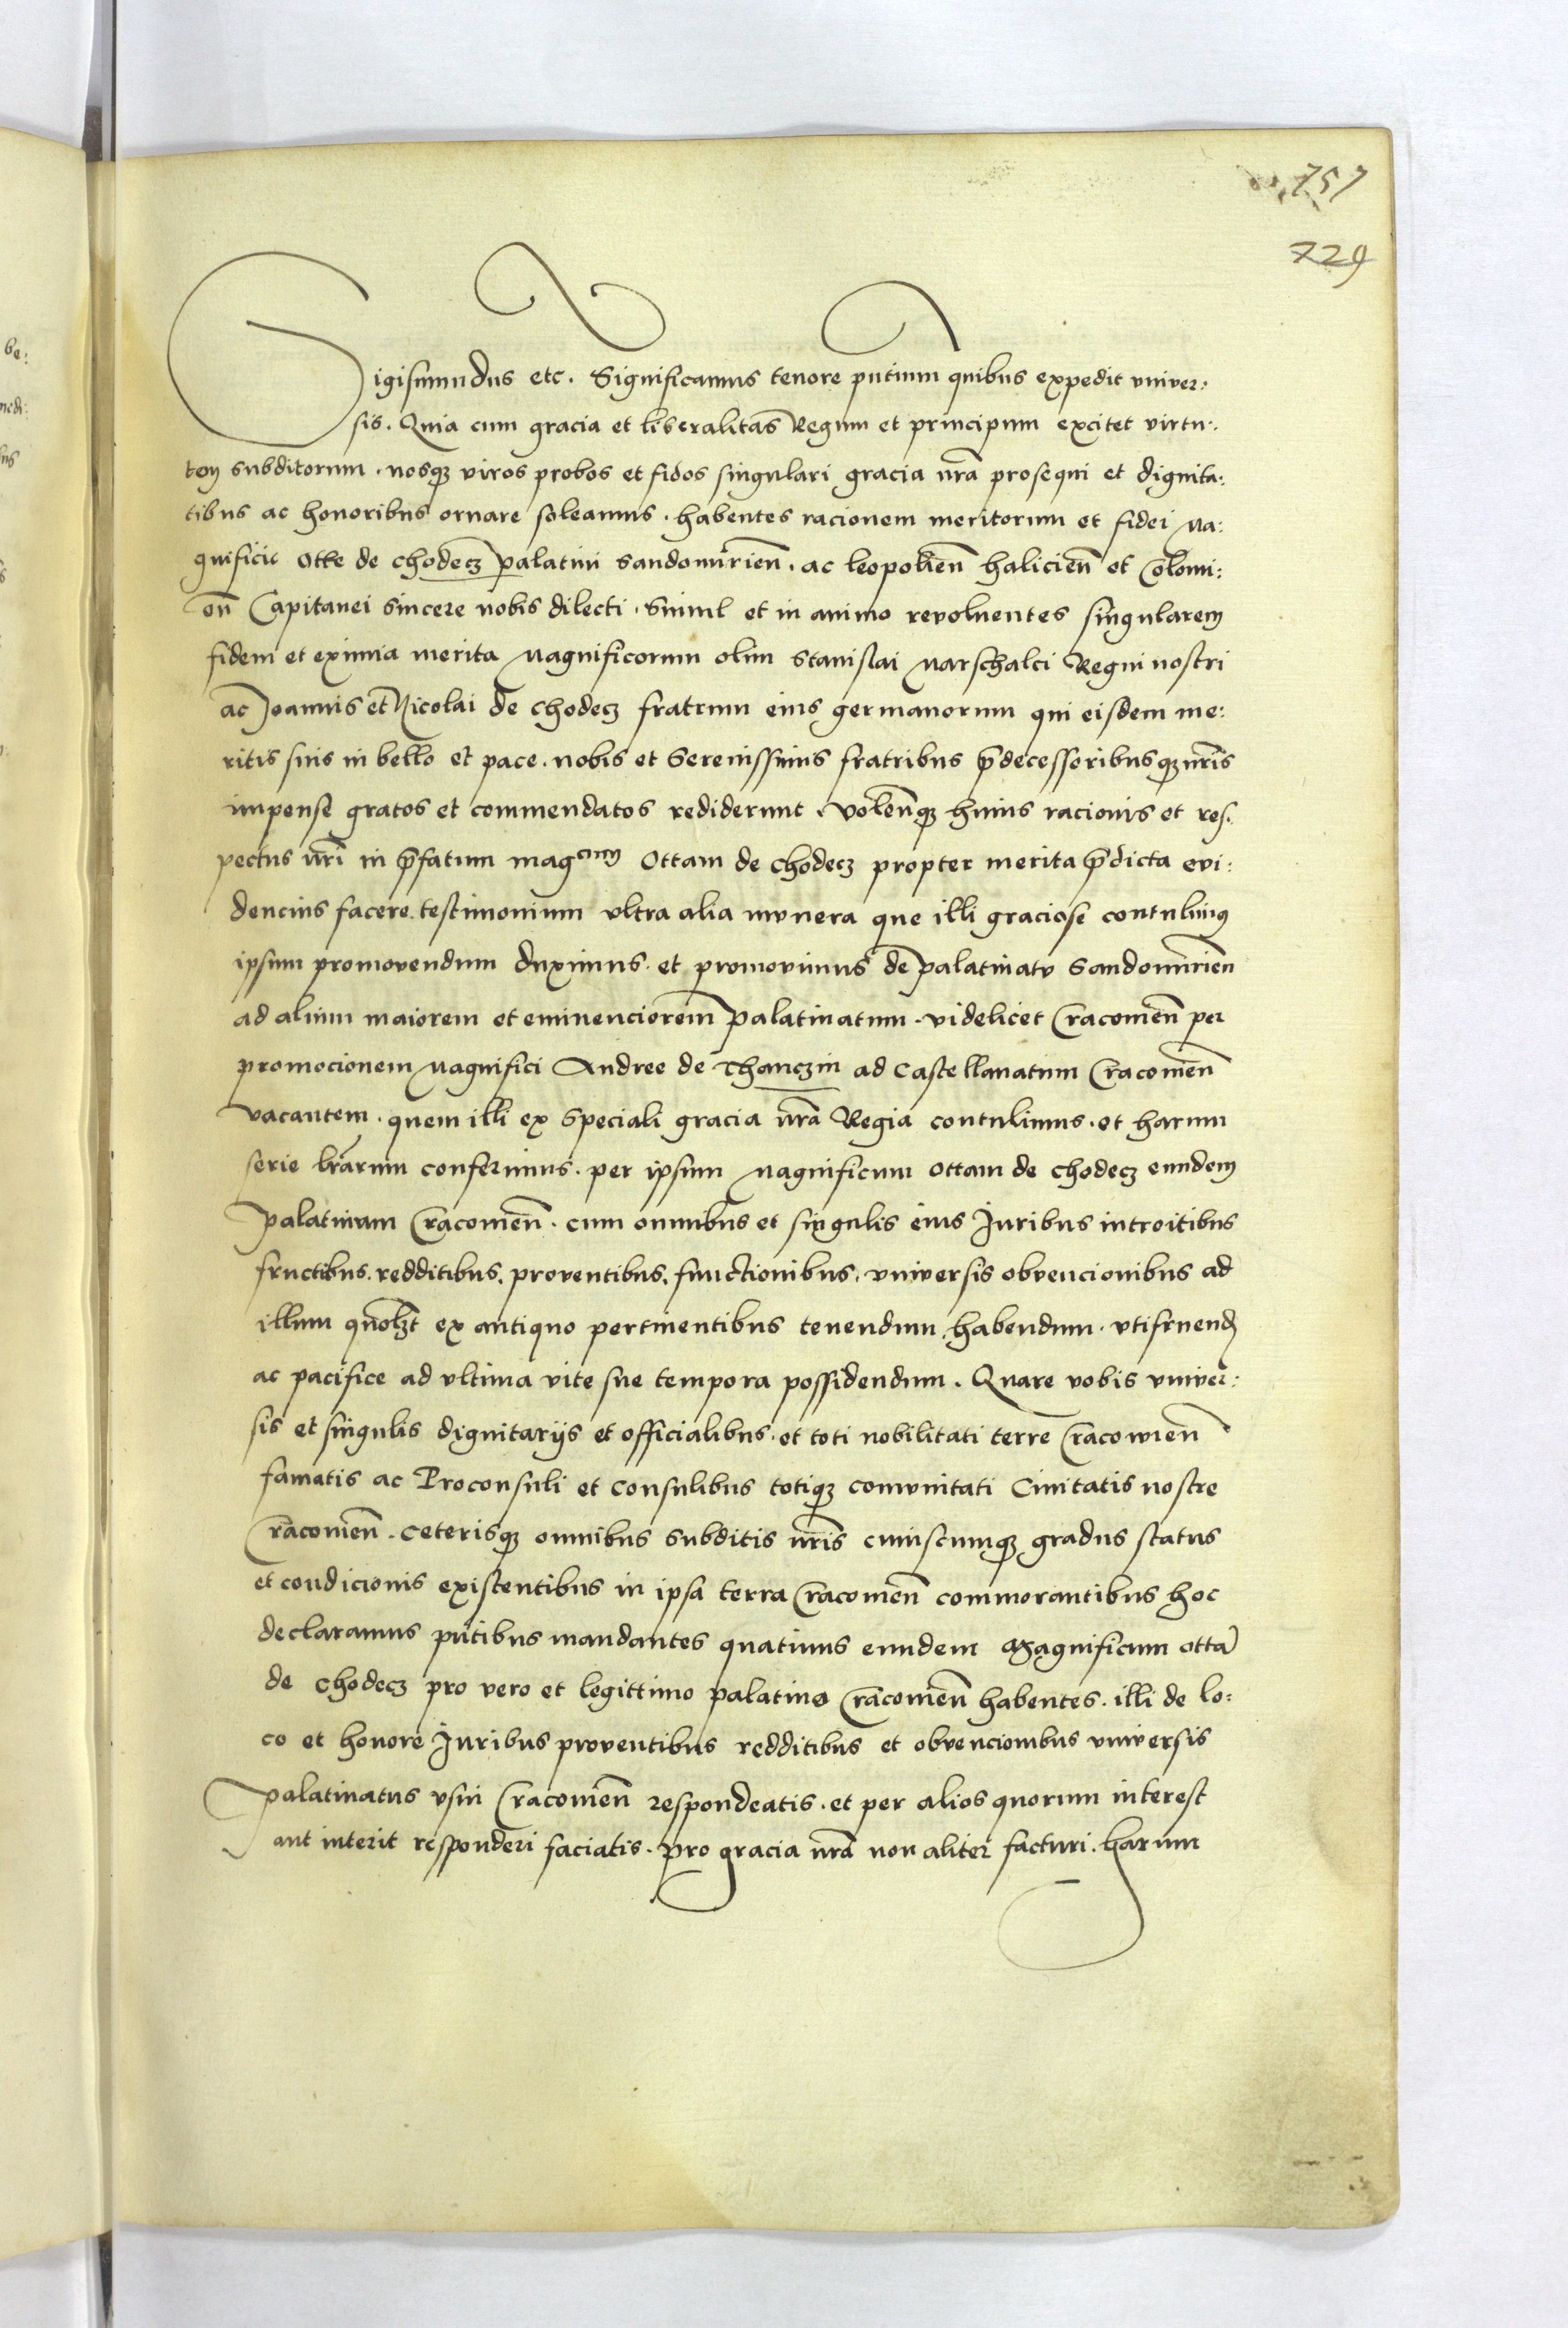 757
729
Sigismundus etc. Significamus tenore pñtium quibus expedit vniver:
sis. Quia cum gracia et liberalitas Regum et principum excitet virtu:
tem subditorum. nosq₃ viros probos et fidos singulari gracia nr̃a prosequi et dignita:
tibus ac honoribus ornare soleamus. habentes racionem meritorum et fidei Ma:
gnificit Otte de Chodecz palatini Sandomirien̄. ac leopolien̄ halicien̄ et Colomi:
en̄ Capitanei sincere nobis dilecti. Simul et in animo revoluentes singularem
fidem et eximia merita Magnificorum olim Stanislai Marschalci Regni nostri
ac Joannis et Nicolai de Chodecz fratrum eius germanorum qui eisdem me:
ritis suis in bello et pace. nobis et Serenissimis fratribus p̃decessoribusq₃ nr̃is
impense gratos et commendatos rediderunt. volen̄q₃ huius racionis et res.
pectus nr̃i in p̃fatum mag^cum Ottam de Chodecz propter merita p̃dicta evi:
dencius facere testimonium vltra alia mvnera que illi graciose contulimus
ipsum promovendum duximus. et promovimus de palatinatv Sandomirien̄
ad alium maiorem et eminenciorem palatinatum. videlicet Cracovien̄ per
promocionem Magnifici Andree de Thanczin ad Castellanatum Cracovien̄
vacantem. quem illi ex speciali gracia nr̃a Regia contulimus. et harum
serie lr̃arum conferimus. per ipsum Magnificum Ottam de Chodecz eundem
palatinatum Cracovien̄. cum omnibus et singulis eius Juribus introitibus
fructibus. redditibus. proventibus. functionibus. vniversis obvencionibus ad
illum quol₃t ex antiquo pertinentibus tenendum. habendum. vtifruend
ac pacifice ad vltima vite sue tempora possidendum. Quare vobis vniver:
sis et singulis dignitarijs et officialibus. et toti nobilitati terre Cracovien̄
famatis ac Proconsuli et Consulibus totiq₃ comvnitati Civitatis nostre
Cracovien̄. Ceterisq₃ omnibus subditis nr̃is cuiuscumq₃ gradus status
et condicionis existentibus in ipsa terra Cracovien̄ commorantibus hoc
declaramus pñtibus mandantes quatinus eundem Magnificum Ottã
de Chodecz pro vero et legittimo palatino Cracovien̄ habentes. illi de lo:
co et honore Juribus proventibus redditibus et obvencionibus vniversis
palatinatus vsui Cracovien̄ respondeatis. et per alios quorum interest
aut interit responderi faciatis. pro gracia nr̃a non aliter facturi. harum